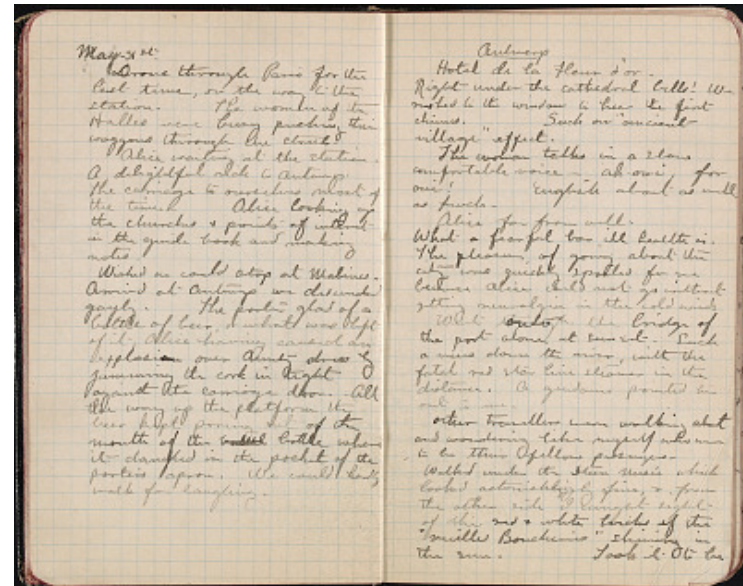 May 31st.
Drove through Paris for the
last time, on the way to the
station. The women of the
Halles were busy pushing their
waggons through the
Alice waiting at the station.
A delightful ride to Antwerp
the carriage to ourselves most of
the time. Alice looking up
the churches & points of interest
in the guide book and making
notes.
Wished we could stop at Malines.
Arrived at Antwerp we descended
gayly. The porter glad of a
bottle of beer, or what was left
of it, Alice having caused an
explosion over Aunty's dress by
jamming the cork in tight
against the carriage door. All
the way up the platform the
beer kept pouring out of the
mouth of the bottle where
it dangled in the pocket of the
porter's apron. We could hardly
walk for laughing.
Antwerp
Hotel de la Fleur d'or.
Right under the cathedral bells! We
rushed to the window to hear the first
chimes. Such an "ancient
village" effect.
The woman talks in a slow
comfortable voice - ah oui, for
oui! English about as well
as french.
Alice far from well.
What a fearful bar ill health is.
The pleasure of going about the
city was quite spoiled for me
because Alice could not go without
getting neuralgia in the cold wind.
Went onto the bridge of
the port alone at sunset. Such
a view down the river, with the
fated red star line steamer in the
distance. A pointed
out to me.
other travellers were walking about
and wondering like myself who were
to be their fellow passengers.
Walked under the Steen Musée which
looked astonishingly fine, & from
the other side I caught sight
of the red & white bricks of the
"vieille Boucherie" shining in
the sun. Took